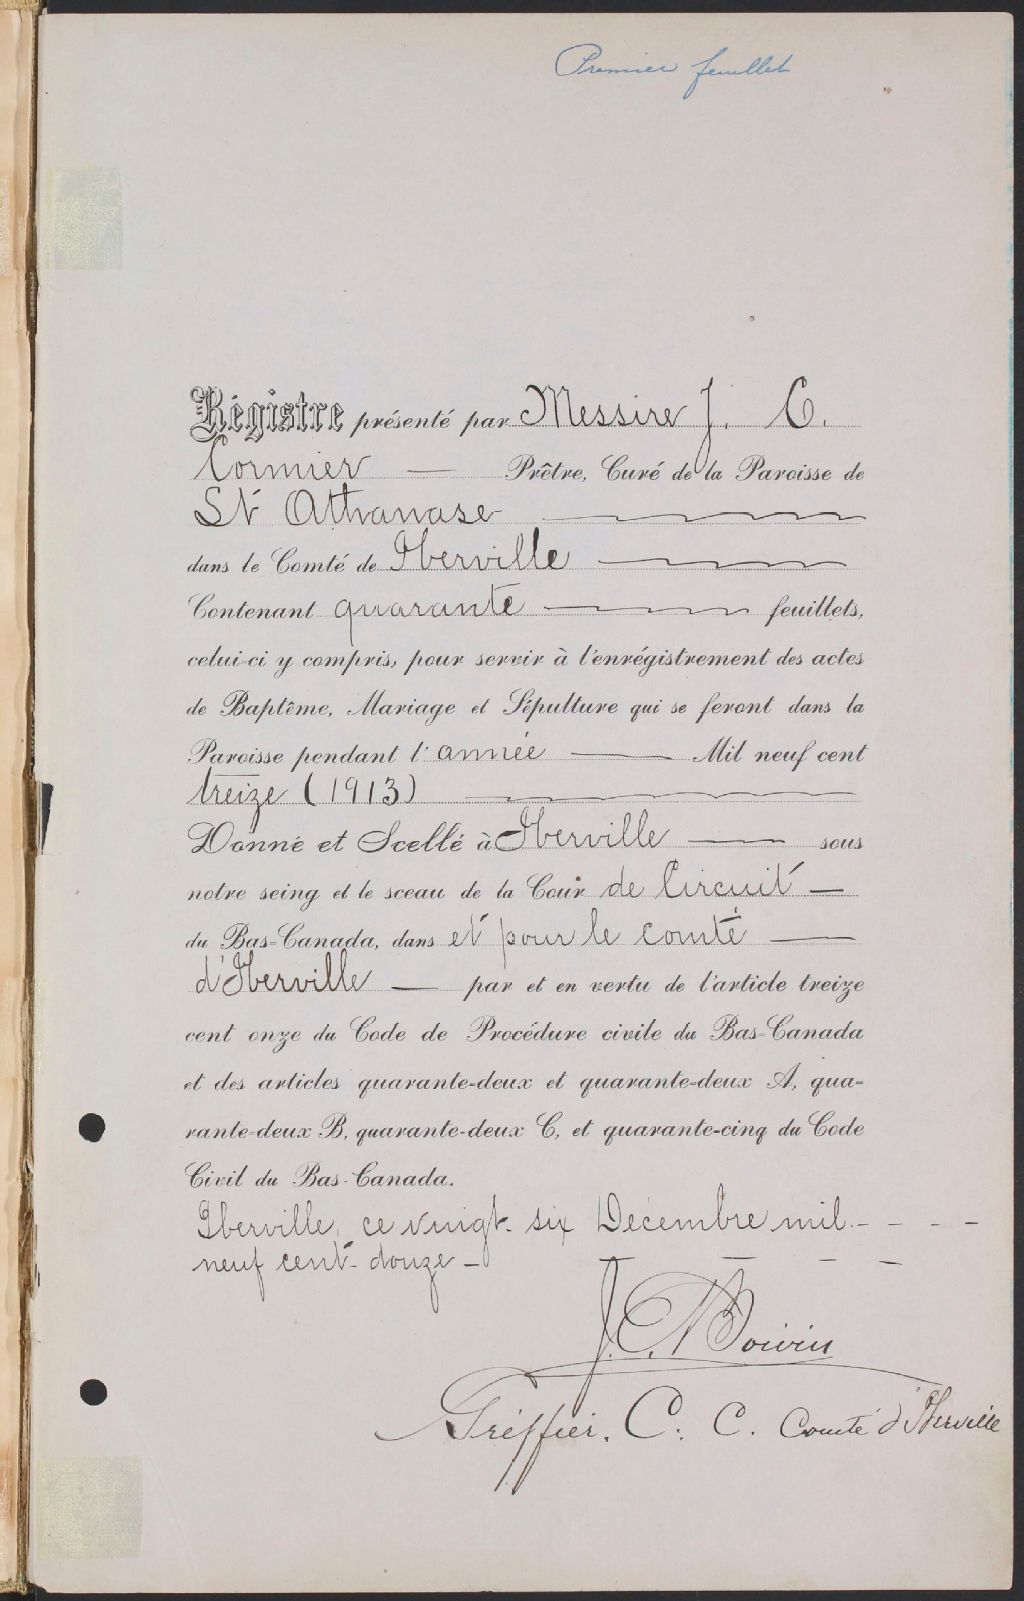 Premier feuillet
Régistre présenté par Messire J. C.
Cormier — Prêtre, Curé de la Paroisse de
St Athanase
dans le Comté de Iberville
Contenant quarante feuillets,
celui-ci y compris, pour servir à l'enrégistrement des actes
de Baptême, Mariage et Sépulture qui se feront dans la
Paroisse pendant l'année — Mil neuf cent
treize (1913)
Donné et Scellé à Iberville — sous
notre seing et le sceau de la Cour de Circuit —
du Bas-Canada, dans et pour le comté —
d'Iberville — par et en vertu de l'article treize
cent onze du Code de Procédure civile du Bas-Canada
et des articles quarante-deux et quarante-deux A, qua-
rante-deux B, quarante-deux C, et quarante-cinq du Code
Civil du Bas-Canada.
Iberville, ce vingt-six Décembre mil - - - -
neuf cent-douze - — — —
J. C. N. Boivin
Greffier. C. C. Comté d'Iberville